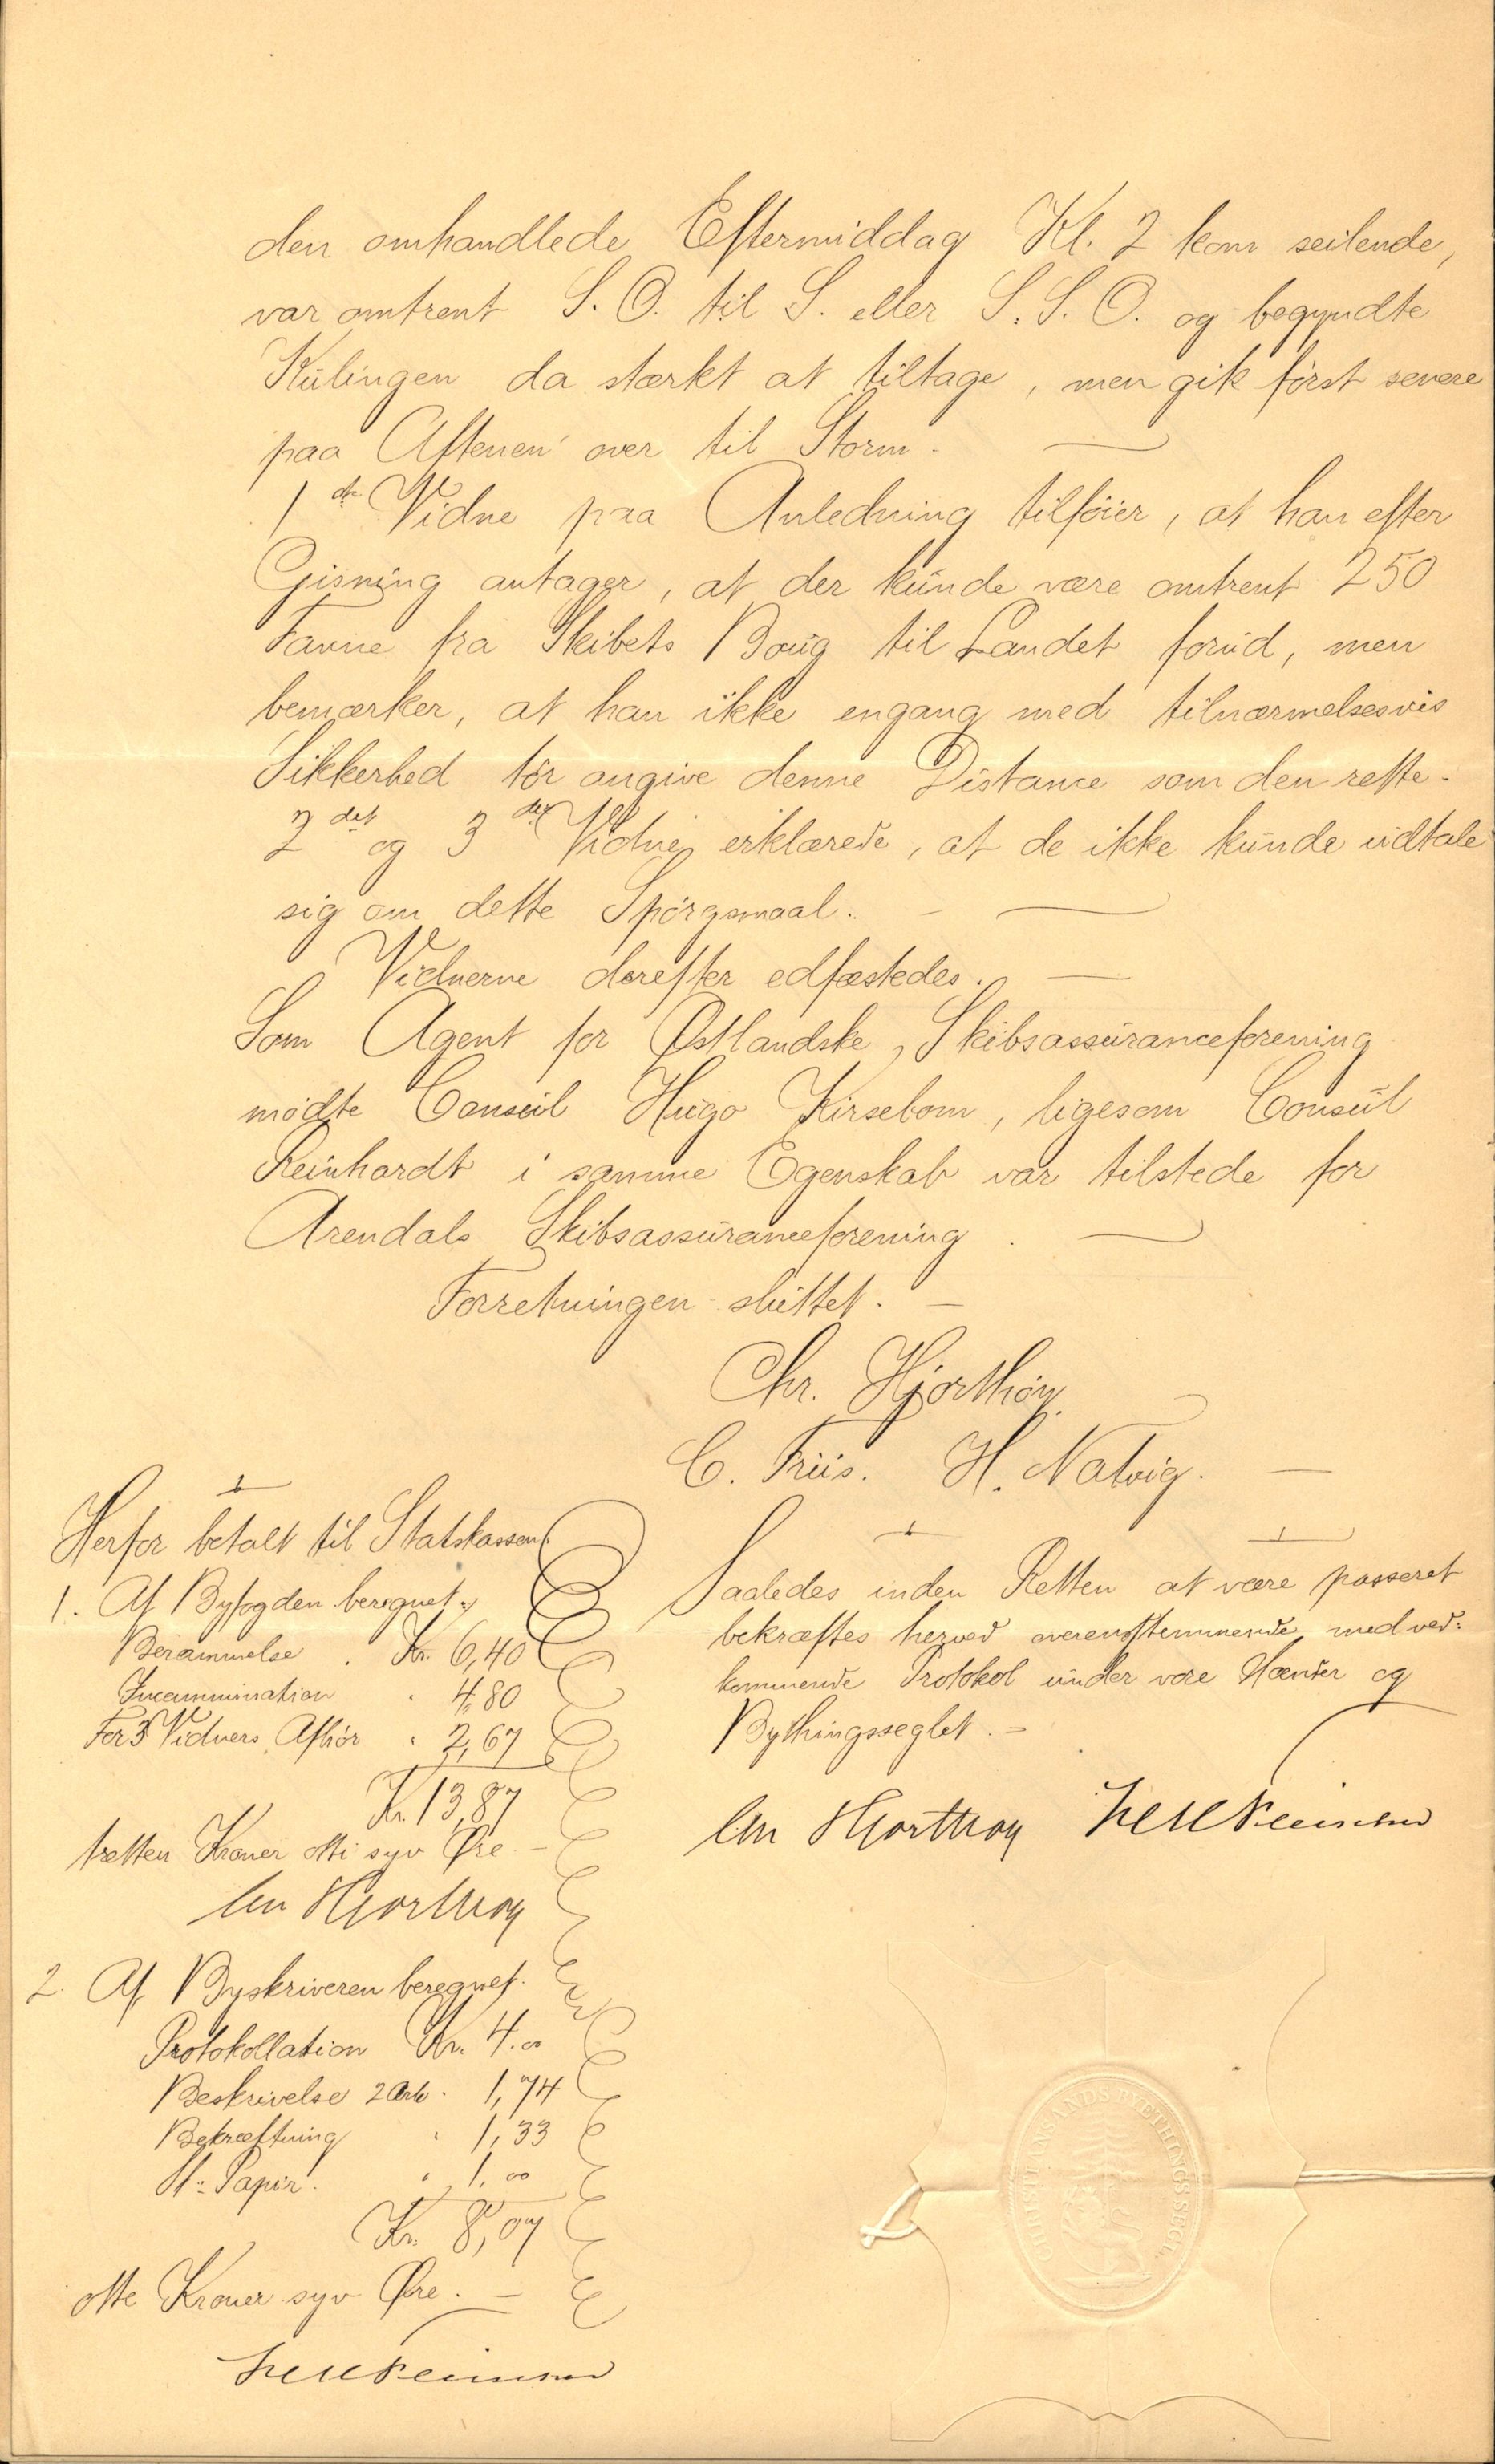 den omhandlede Eftermiddag Kl. 2 kom seilende,
var omtrent S. O. til S. eller S. S. O. og begyndte
Kulingen da stærkt at tiltage, men gik først senere
paa Aftenen over til Storm.
1de Vidne paa Anledning tilføier, at han efter
Gisning antager, at der kunde være omtrent 250
Favne fra Skibets Boug til Landet forud, men
bemærker, at han ikke engang med tilnærmelsesvis
Sikkerhed tør angive denne Distance som den rette.
2det og 3die Vidne erklærede, at de ikke kunde udtale
sig om dette Spørgsmaal.
Vidnerne derefter edfæstedes.
Som Agent for Østlandske Skibsassuranceforening
mødte Consul Hugo Kirsebom, ligesom Consul
Reinhardt i samme Egenskab var tilstede for
Arendals Skibsassuranceforening.
Forretningen sluttet.
Chr. Hjorthøy.
C. Friis. H. Natvig.
Herfor betalt til Statskassen:
1. Af Byfogden beregnet:
Berammelse . Kr. 6,40
Incammination " 4,80
For 3 Vidners Afhør " 2,67
Kr. 13,87
tretten Kroner otti syv Øre.
Chr Hjorthoy
2. Af Byskriveren beregnet.
Protokollation Kr. 4.00
Beskrivelse 2 Ark. 1,74
Bekræftning " 1,33
St: Papir. " 1,00
Kr. 8,07
otte Kroner syv Øre.
Saaledes inden Retten at være passeret
bekræftes herved overensstemmende med ved-
kommende Protokol under vore Hænder og
Bythingsseglet.
Chr Hjorthoy
CHRISTIANSANDS BYETHINGS SEGL.